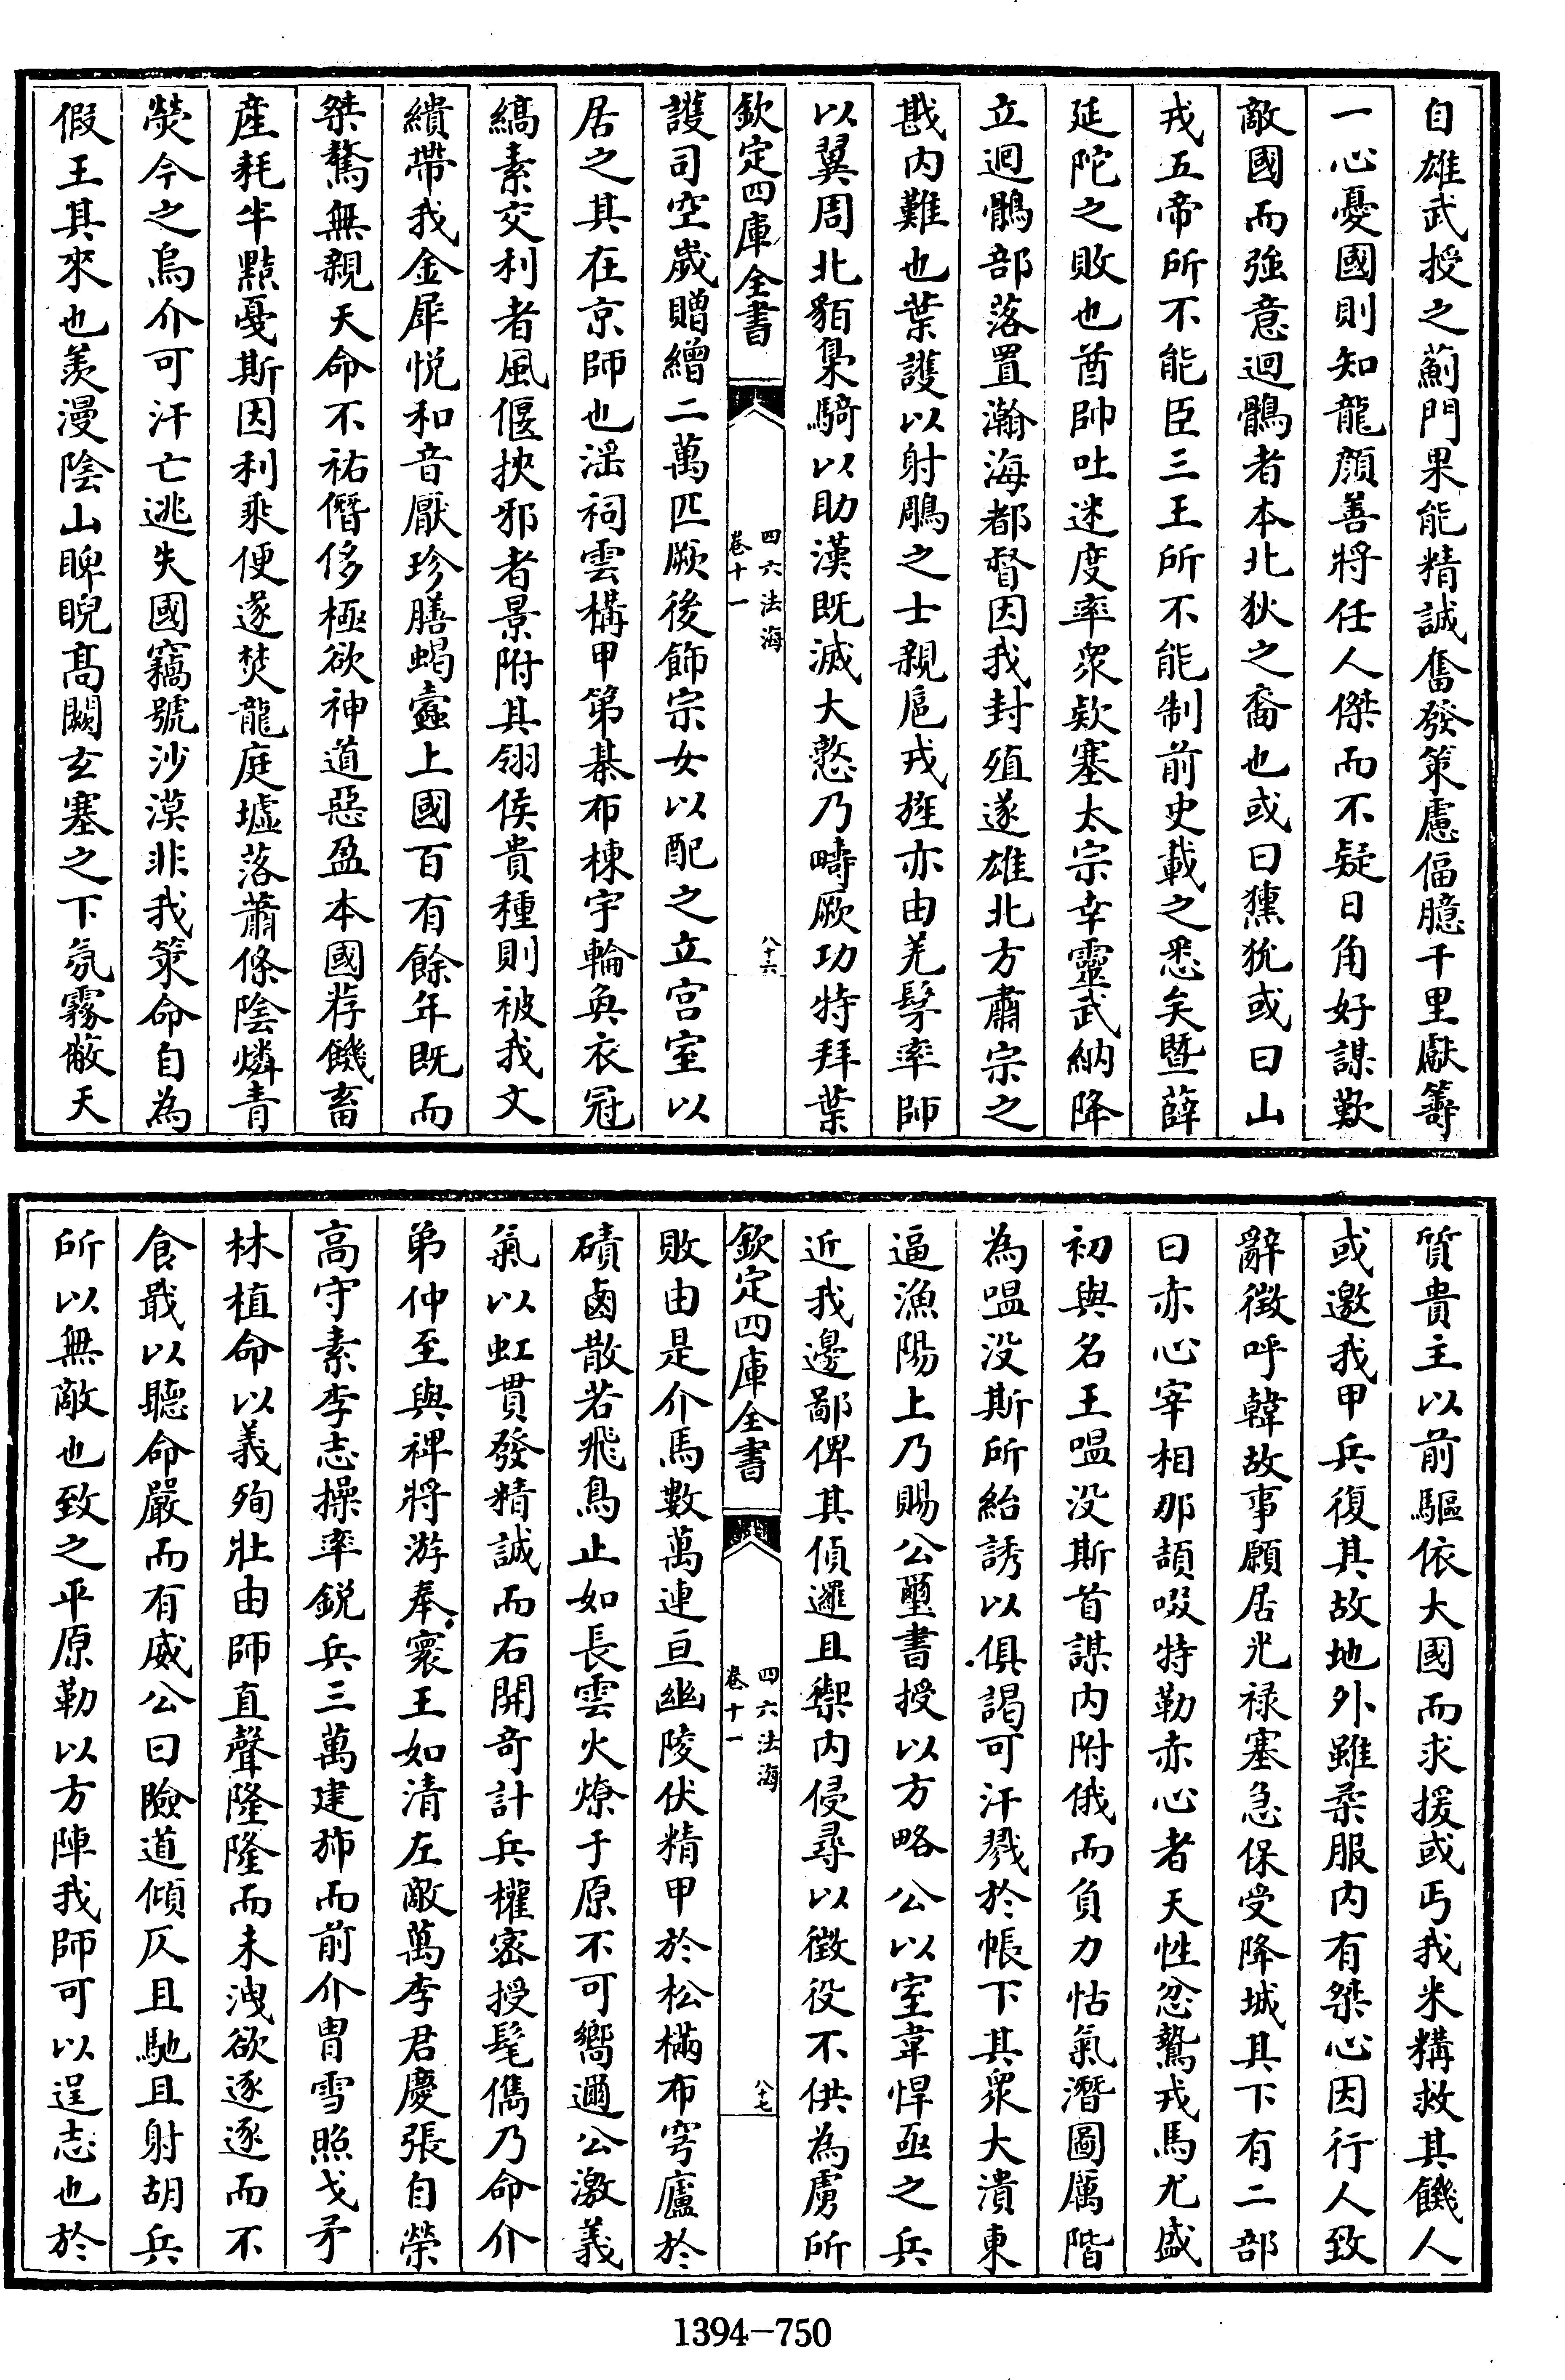 自雄武授之薊門果能精誠奮發策慮偪臆千里獻籌
一心憂國則知龍顔善將任人傑而不疑日角好謀歎
敵國而強意迴鶻者本北狄之裔也或曰獯狁或曰山
戎五帝所不能臣三王所不能制前史載之悉矣暨薛
延陀之敗也酋帥吐迷度率衆欵塞太宗幸靈武納降
立迴鶻部落置瀚海都督因我封殖遂雄北方肅宗之
戡内難也葉護以射鵰之士親扈戎旌亦由羌髳率師
以翼周北貊梟騎以助漢既滅大憝乃疇厥功特拜葉
欽定四庫全書
四六法海
卷十一
八十六
護司空歲贈繒二萬匹厥後飾宗女以配之立宫室以
居之其在京師也滛祠雲構甲第棊布棟宇輪奐衣冠
縞素交利者風偃挾邪者景附其翎侯貴種則被我文
繢帶我金犀悦和音厭珍膳蝎蠧上國百有餘年既而
桀驁無親天命不祐僭侈極欲神道惡盈本國荐饑畜
産耗半黠戞斯因利乘便遂焚龍庭墟落蕭條陰燐青
熒今之烏介可汗亡逃失國竊號沙漠非我策命自為
假王其來也羨漫陰山睥睨髙闕玄塞之下氛霧蔽天
質貴主以前驅依大國而求援或丐我米糒救其饑人
或邀我甲兵復其故地外雖柔服内有桀心因行人致
辭徴呼韓故事願居光禄塞急保受降城其下有二部
曰赤心宰相那頡啜特勒赤心者天性忿鷙戎馬尤盛
初與名王嗢没斯首謀内附俄而負力怙氣潛圖厲階
為嗢没斯所紿誘以俱謁可汗戮於帳下其衆大潰東
逼漁陽上乃賜公璽書授以方略公以室韋悍亟之兵
近我邊鄙俾其偵邏且禦内侵尋以徴役不供為虜所
欽定四庫全書
四六法海
卷十一
八十七
敗由是介馬數萬連亘幽陵伏精甲於松樠布穹廬於
磧鹵散若飛鳥止如長雲火燎于原不可嚮邇公激義
氣以虹貫發精誠而石開奇計兵權密授髦儁乃命介
弟仲至與裨將游奉寰王如清左敵萬李君慶張自榮
高守素李志操率鋭兵三萬建斾而前介胄雪照戈矛
林植命以義殉壯由師直聲隆隆而未洩欲逐逐而不
食戢以聽命嚴而有威公曰險道傾仄且馳且射胡兵
所以無敵也致之平原勒以方陣我師可以逞志也於
1394-750